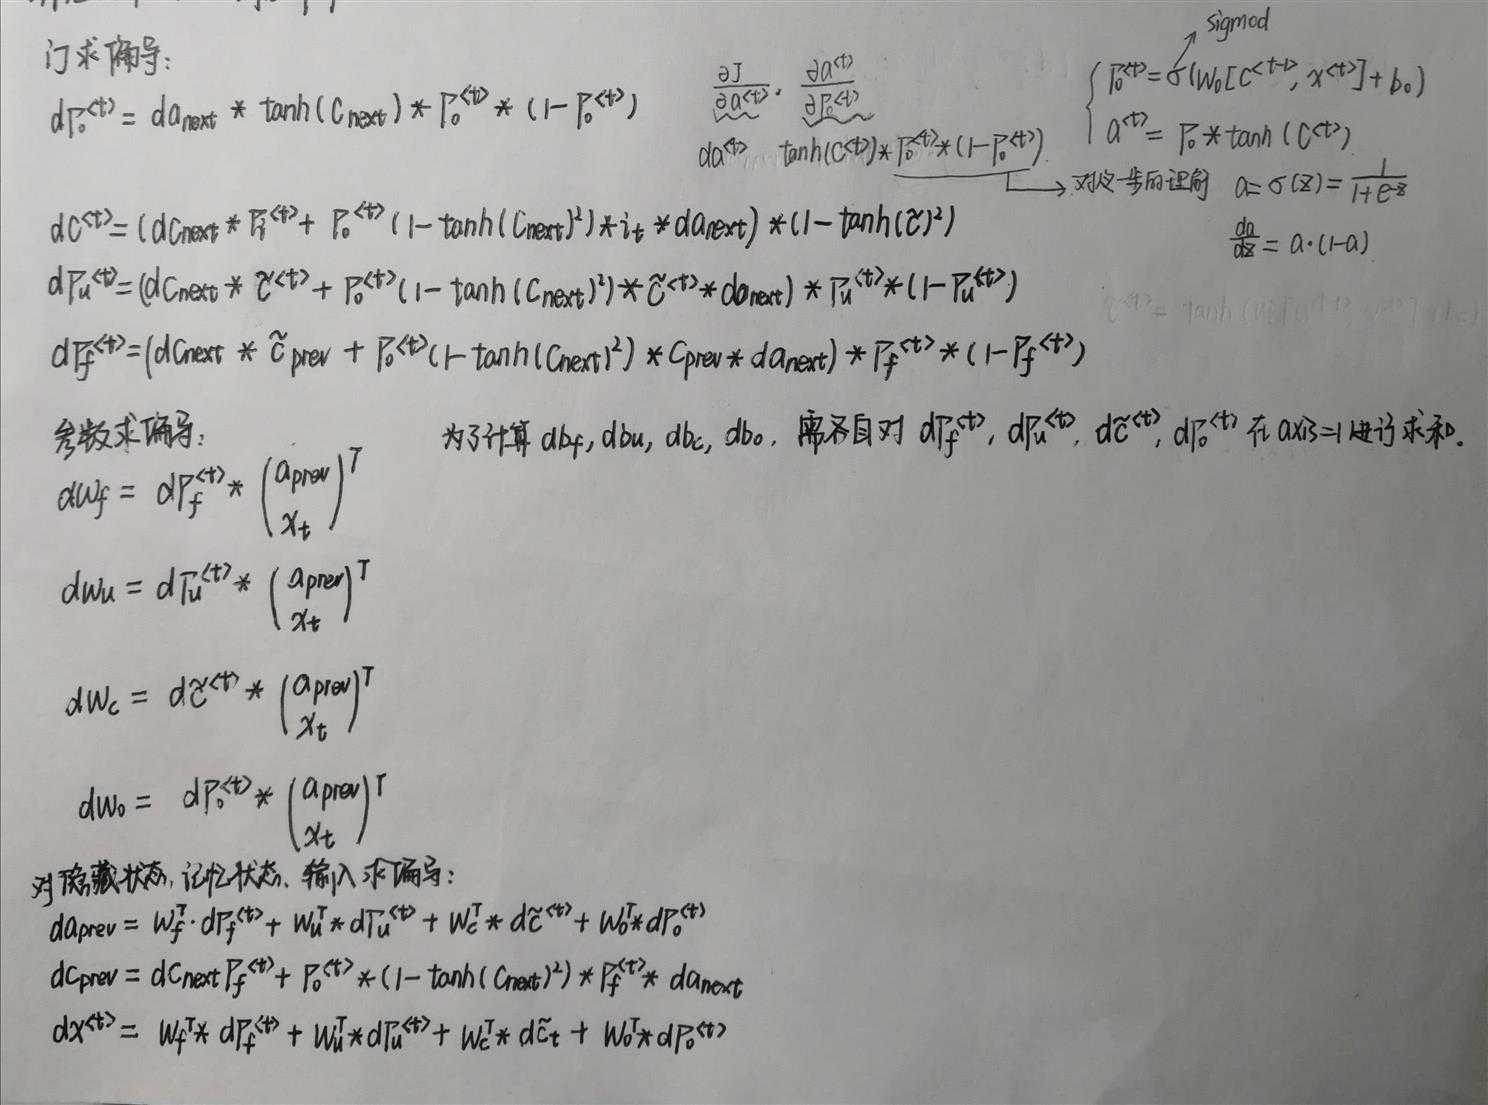 门求偏导:
dΓₒ^<t> = da_next * tanh(C_next) * Γₒ^<t> * (1-Γₒ^<t>)
∂J/∂a^<t> · ∂a^<t>/∂Γₒ^<t>
da^<t> tanh(C^<t>)*Γₒ^<t>*(1-Γₒ^<t>)
sigmod
Γₒ^<t> = σ(Wₒ[C^<t-1>, x^<t>]+bₒ)
a^<t> = Γₒ * tanh(C^<t>)
对这一步的理解 a=σ(z)=1/(1+e^-z)
da/dz = a·(1-a)
dC^<t> = (dC_next * Γ_i^<t> + Γₒ^<t>(1-tanh(C_next)²)*i_t*da_next)*(1-tanh(c̃)²)
dΓ_u^<t> = (dC_next * c̃^<t> + Γₒ^<t>(1-tanh(C_next)²)*c̃^<t>*da_next)*Γ_u^<t>*(1-Γ_u^<t>)
dΓ_f^<t> = (dC_next * c̃_prev + Γₒ^<t>(1-tanh(C_next)²)*C_prev*da_next)*Γ_f^<t>*(1-Γ_f^<t>)
参数求偏导:
为了计算 db_f, db_u, db_c, db_o, 需各自对 dΓ_f^<t>, dΓ_u^<t>, dc̃^<t>, dΓₒ^<t> 在axis=1进行求和.
dW_f = dΓ_f^<t> * (a_prev x_t)^T
dW_u = dΓ_u^<t> * (a_prev x_t)^T
dW_c = dc̃^<t> * (a_prev x_t)^T
dW_o = dΓₒ^<t> * (a_prev x_t)^T
对隐藏状态, 记忆状态、输入求偏导:
da_prev = W_f^T·dΓ_f^<t> + W_u^T*dΓ_u^<t> + W_c^T*dc̃^<t> + W_o^T*dΓₒ^<t>
dC_prev = dC_next Γ_f^<t> + Γₒ^<t>*(1-tanh(C_next)²)*Γ_f^<t>*da_next
dx^<t> = W_f^T*dΓ_f^<t> + W_u^T*dΓ_u^<t> + W_c^T*dc̃_t + W_o^T*dΓₒ^<t>